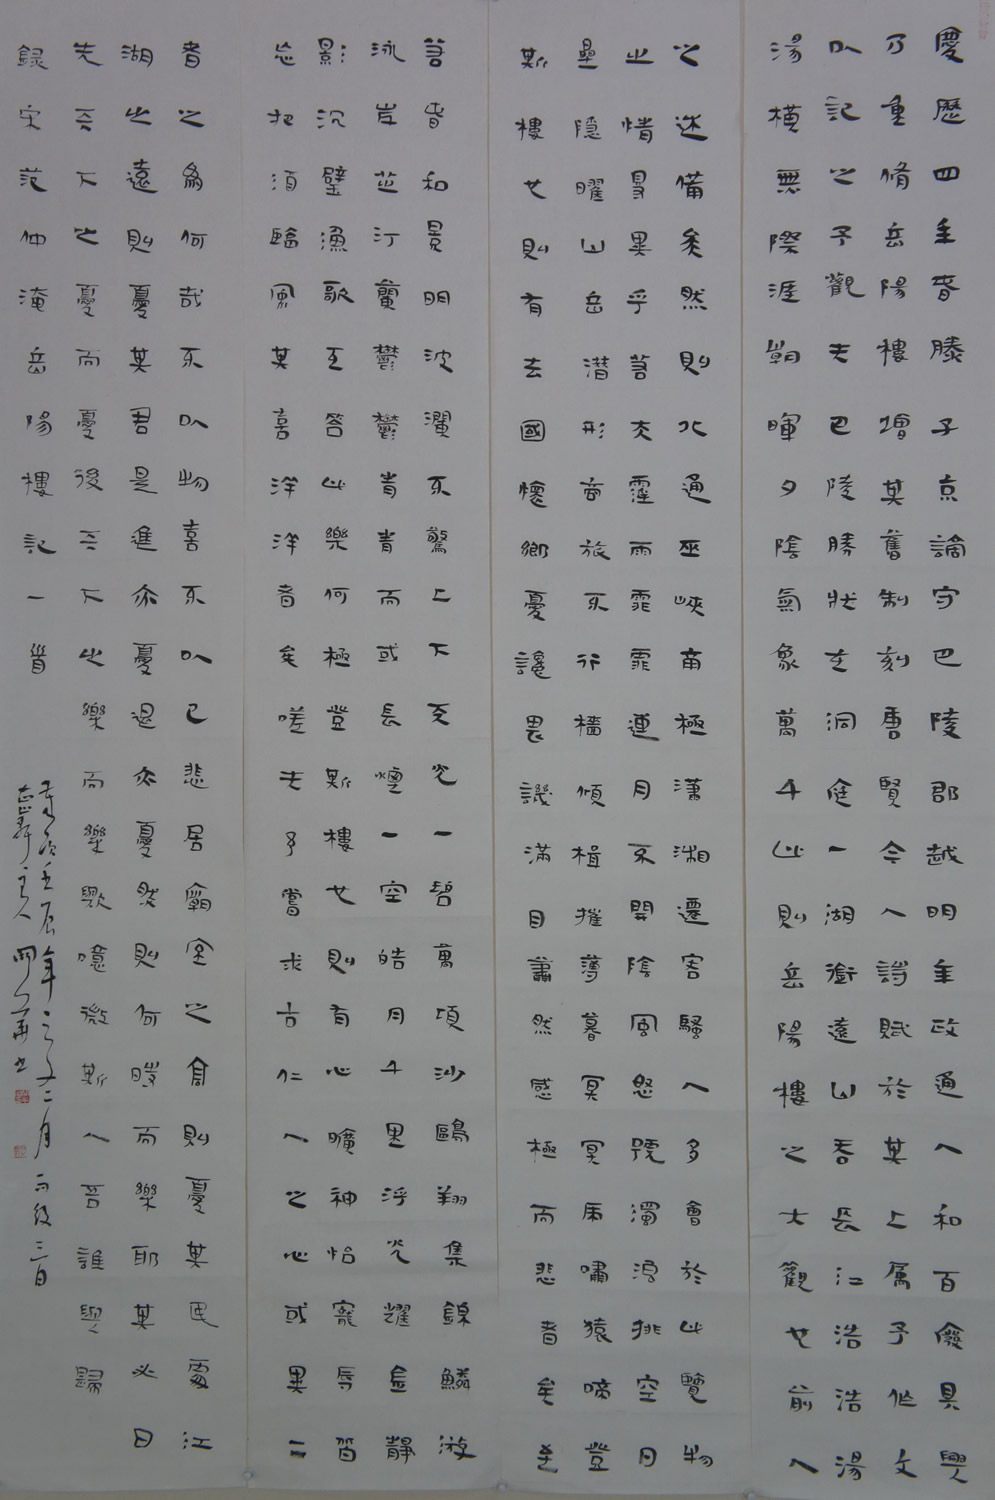 慶歷四年春滕子京謫守巴陵郡越明年政通人和百廢具興
乃重脩岳陽樓增其舊制刻唐賢今人詩賦於其上屬予作文
以記之予觀夫巴陵勝狀在洞庭一湖銜遠山吞長江浩浩湯
湯橫無際涯朝暉夕陰氣象萬千此則岳陽樓之大觀也前人
之述備矣然則北通巫峽南極瀟湘遷客騷人多會於此覽物
之情得異乎若夫霪雨霏霏連月不開陰風怒號濁浪排空日
星隱曜山岳潛形商旅不行檣傾楫摧薄暮冥冥虎嘯猿啼登
斯樓也則有去國懷鄉憂讒畏譏滿目蕭然感極而悲者矣至
若春和景明波瀾不驚上下天光一碧萬頃沙鷗翔集錦鱗游
泳岸芷汀蘭鬱鬱青青而或長煙一空皓月千里浮光耀金靜
影沉璧漁歌互答此樂何極登斯樓也則有心曠神怡寵辱皆
忘把酒臨風其喜洋洋者矣嗟夫予嘗求古仁人之心或異二
者之為何哉不以物喜不以己悲居廟堂之高則憂其民處江
湖之遠則憂其君是進亦憂退亦憂然則何時而樂耶其必曰
先天下之憂而憂後天下之樂而樂歟噫微斯人吾誰與歸
錄宋范仲淹岳陽樓記一首
歲次壬辰年之二月三日
主人